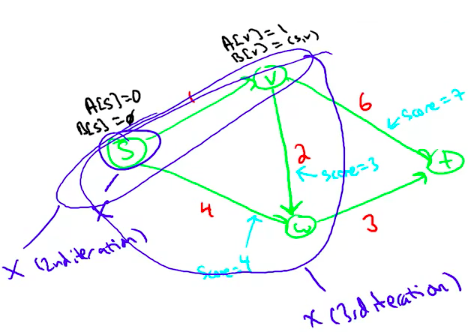 A[V]=1
B[V]=(s,v)
A[S]=0
B[S]=φ
1
V
6
score=7
S
2
score=3
t
X
4
w
3
X (2nd iteration)
score=4
X (3rd iteration)